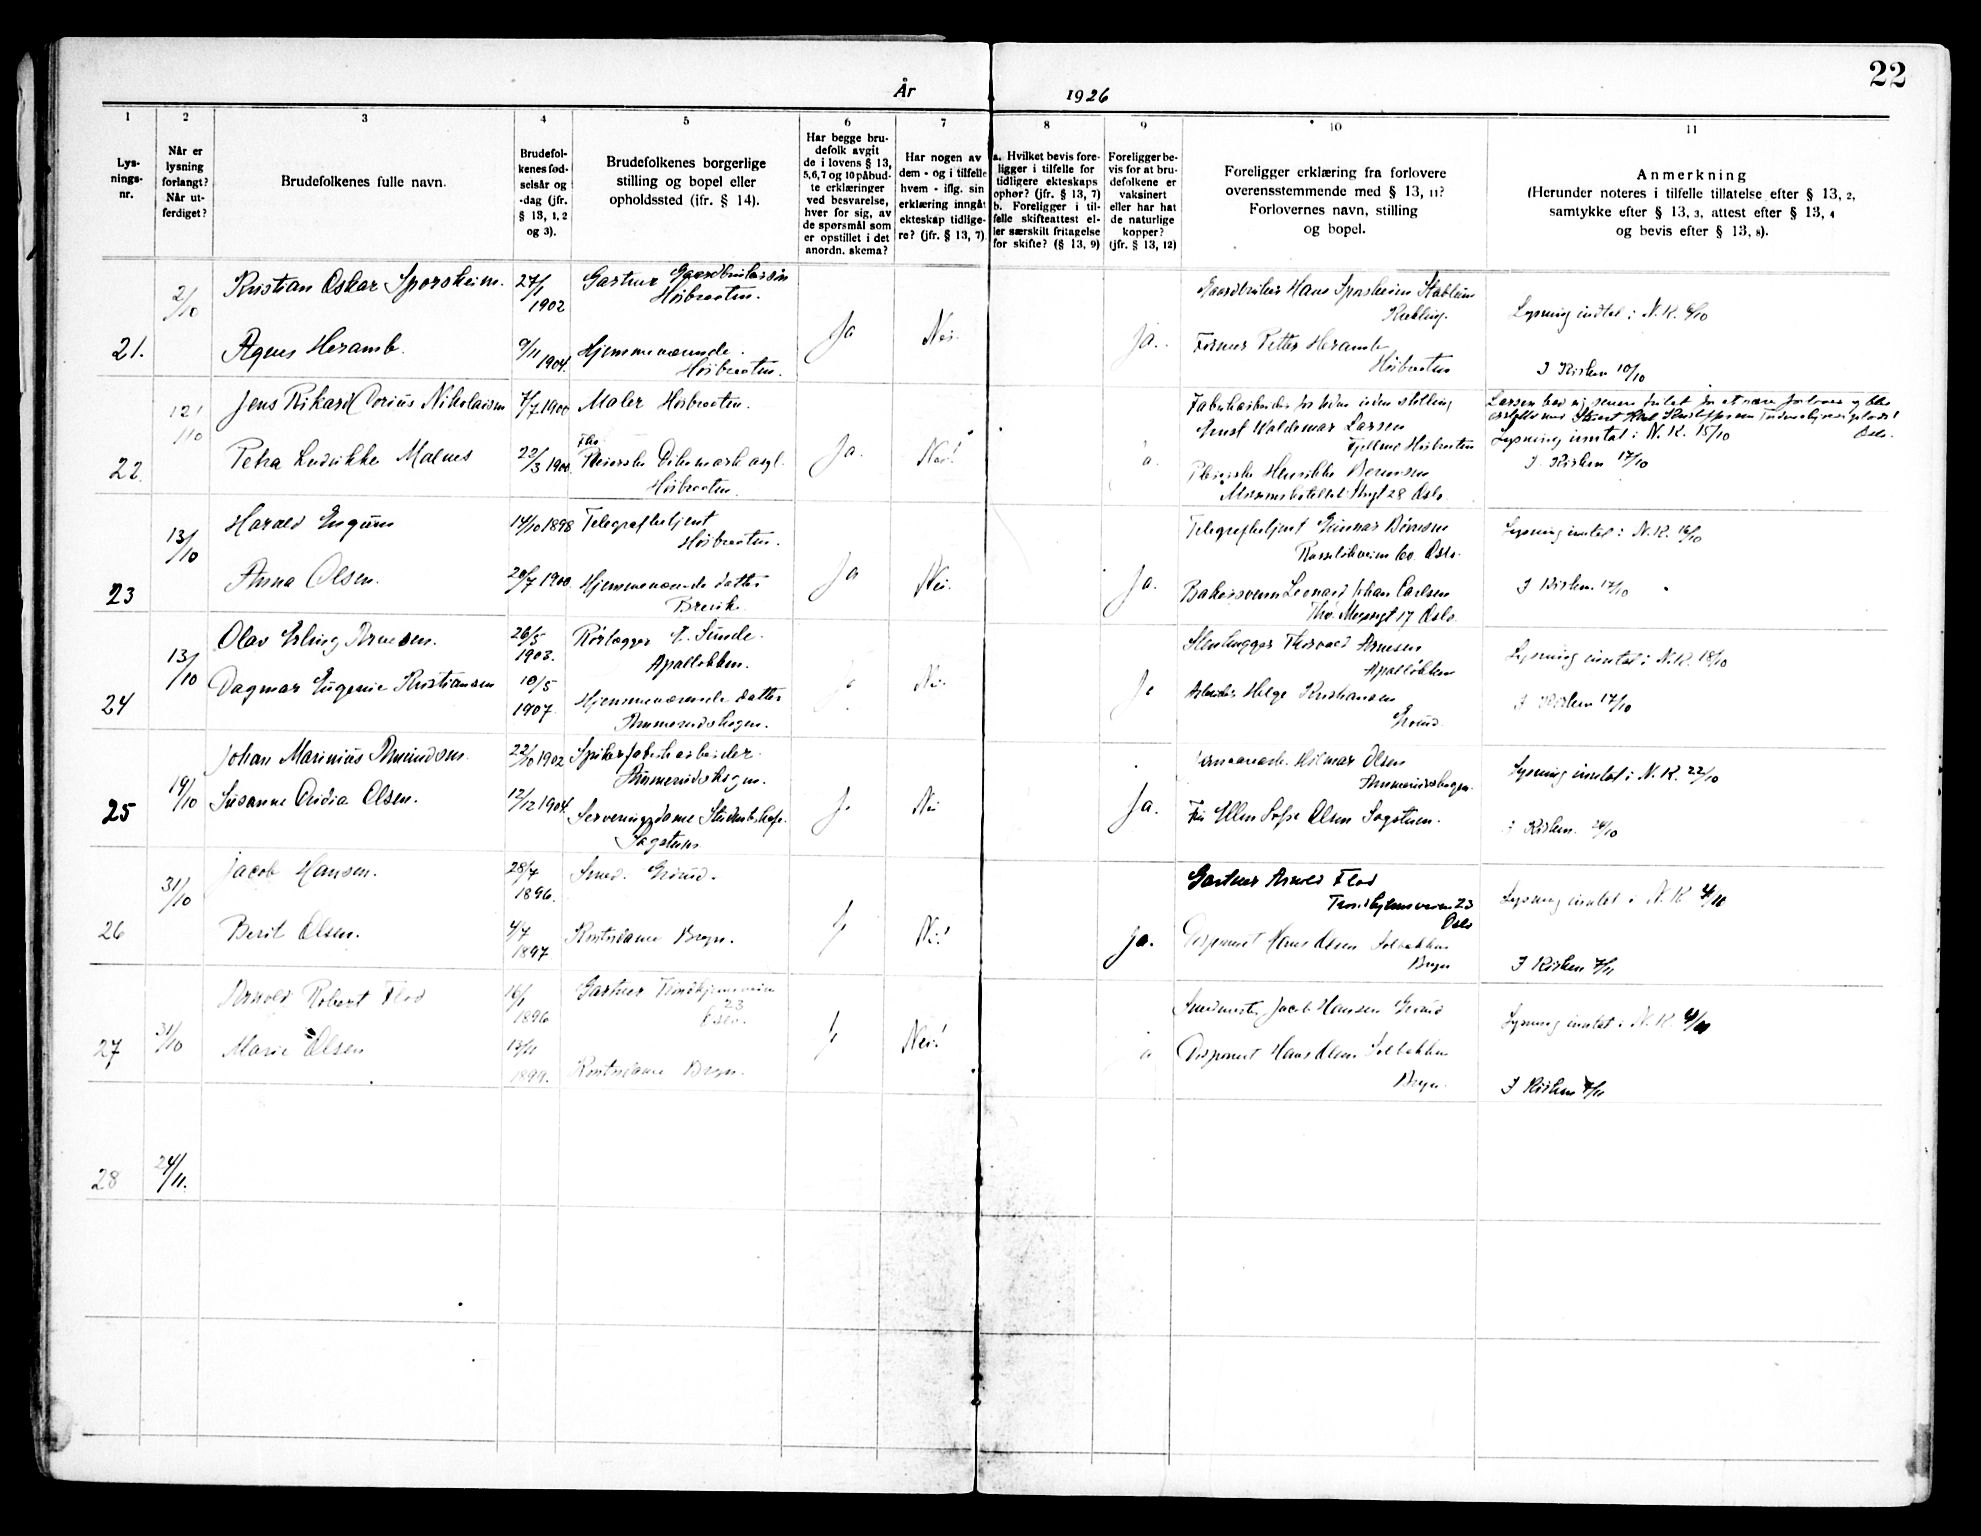 22
År 1926
1 2 3 4 5 6 7 8 9 10 11
Lys-
nings-
nr.
Når er
lysning
forlangt?
Når ut-
ferdiget?
Brudefolkenes fulle navn.
Brudefol-
kenes fød-
selsår og
-dag (jfr.
§ 13, 1, 2
og 3).
Brudefolkenes borgerlige
stilling og bopel eller
opholdssted (ifr. § 14).
Har begge bru-
defolk avgit
de i lovens § 13,
5,6,7 og 10 påbud-
te erklæringer
ved besvarelse,
hver for sig, av
de spørsmål som
er opstillet i det
anordn. skema?
Har nogen av
dem - og i tilfelle
hvem - iflg. sin
erklæring inngåt
ekteskap tidlige-
re? (jfr. § 13, 7)
a. Hvilket bevis fore-
ligger i tilfelle for
tidligere ekteskaps
ophør? (jfr. § 13, 7)
b. Foreligger i til-
felle skifteattest el-
ler særskilt fritagelse
for skifte? (§ 13, 9)
Foreligger be-
vis for at bru-
defolkene er
vaksinert
eller har hat
de naturlige
kopper?
(jfr. § 13, 12)
Foreligger erklæring fra forlovere
overensstemmende med § 13, 11?
Forlovernes navn, stilling
og bopel.
Anmerkning
(Herunder noteres i tilfelle tillatelse efter § 13, 2,
samtykke efter § 13, 3, attest efter § 13, 4
og bevis efter § 13, 8).
21.
2/10
Kristian Oskar Sporsheim.
27/1
1902
Gartner Gaardbrukersøn
Høibraaten.
Agnes Heramb.
9/11
1904.
Hjemmeværende.
Høibraaten.
Ja
Nei.
Ja.
Gaardbruker Hans Sporsheim Stablum
Forner Petter Heramb
Høibraaten
Lysning indtat i N.K. 6/10
I Kirken 10/10
22.
12/10
Jens Rikard Dorius Nikolaisen
7/7 1900
Maler Høibraaten.
Petra Ludvikke Malnes
22/3 1900
Pleierske Dikemark asyl.
Høibraaten.
Ja.
Nei!
a.
Ernst Waldemar Larsen
Fjellmo Høibraaten
Pleierske Henrikke
28 Oslo
Oslo.
Lysning inntat i N.K. 15/10
I Kirken 17/10
23
13/10
Harald Engum
14/10 1898
Telegrafbetjent
Høibraaten.
Anna Olsen.
20/7 1900
Hjemmeværende datter
Brevik.
Ja
Nei.
Ja.
Telegrafbetjent Gunnar
60 Oslo.
Bakersvenn Leonard Johan Carlsen
Thv. Meyersgt 17 Oslo.
Lysning inntat i N.K. 16/10
I Kirken. 17/10
24
13/10
Olav Erling Arnesen.
26/5
1903.
Rørlegger E. Sunde.
Apalløkken.
Dagmar Eugenie Kristiansen
10/5
1907.
Hjemmeværende datter
Ammerudskogen.
Nei.
Ja
Stenhugger Thorvald Arnesen
Apalløkken
Arbeider Helge Kristiansen
Grorud.
Lysning inntat i N.K. 18/10
I Kirken 17/10
25
19/10
Johan Marinius Amundsen.
22/10 1902
Spikerfabrikarbeider.
Ammerudskogen.
Susanne Ovidia Olsen.
12/12 1904.
Serveringsdame
Sagstuen
Ja
Nei
Ja.
Hilmar Olsen
Ammerudskogen.
Fru Ellen Sofie Olsen Sagstuen.
Lysning inntat i N.K. 22/10
I Kirken. 24/10
26
31/10
Jacob Hansen.
28/7
1896.
Smed. Grorud.
Berit Olsen.
4/7
1897
Kontordame Bryn.
Nei!
Ja.
Gartner Arnold Flod
Trondhjemsveien 23
Oslo
Disponent Hans Olsen Solbakken
Bryn
Lysning inntat i N.K. 4/10
I Kirken 7/11
27
31/10
Arnold Robert Flod
16/1
1896
Gartner Trondhjemsveien
23
Oslo.
Marie Olsen
13/11
1899.
Kontordame Bryn.
Nei!
a
Smedmester Jacob Hansen Grorud
Disponent Hans Olsen Solbakken
Bryn.
Lysning inntat i N.K.
I Kirken 7/11
28
24/11.